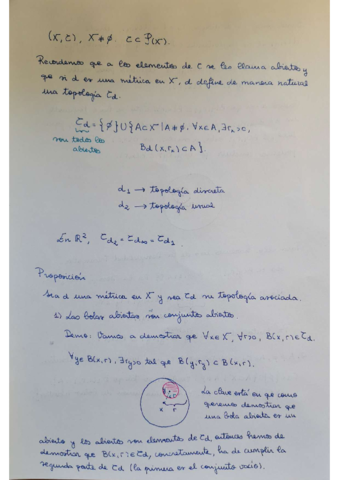 (X, τ), X ≠ ∅. τ ⊂ P(X).
Recordemos que a los elementos de τ se les llama abiertos y
que si d es una métrica en X, d define de manera natural
una topología τd.
τd = {∅} ∪ {A ⊂ X | A ≠ ∅, ∀x∈A, ∃rx>0,
son todos los
abiertos
Bd(x,rx) ⊂ A}
d1 → topología discreta
d2 → topología usual
En R², τd2 = τd∞ = τd1
Proposición
Sea d una métrica en X y sea τd su topología asociada.
1) Las bolas abiertas son conjuntos abiertos
Demo: Vamos a demostrar que ∀x∈X, ∀r>0, B(x,r)∈τd.
∀y∈B(x,r), ∃ry>0 tal que B(y,ry) ⊂ B(x,r).
x r
La clave está en que como
queremos demostrar que
una bola abierta es un
abierto y los abiertos son elementos de τd entonces hemos de
demostrar que B(x,r)∈τd, concretamente, ha de cumplir la
segunda parte de τd (la primera es el conjunto vacío).